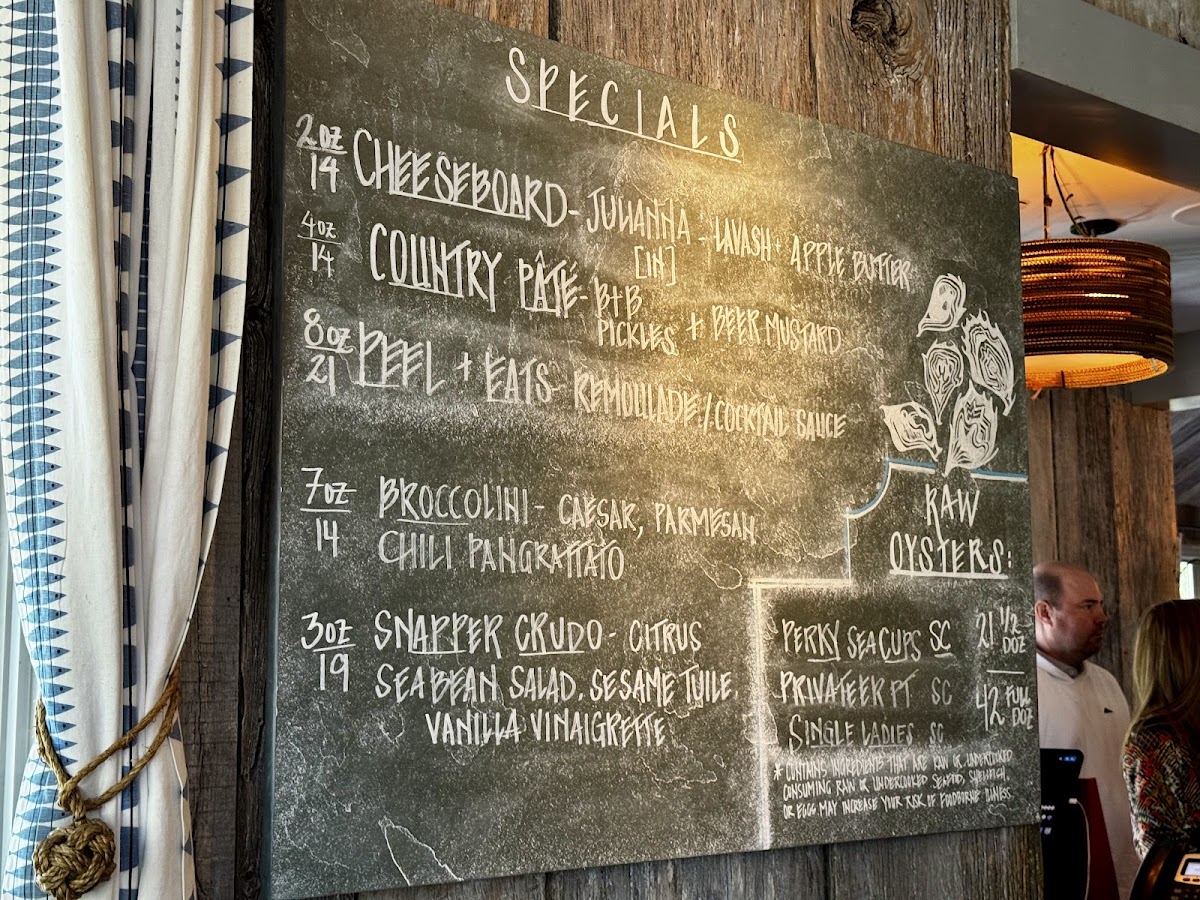 SPECIALS
2oz
14
CHEESEBOARD - JULIANNA - LAVASH + APPLE BUTTER
[IN]
4oz
14
COUNTRY PÂTÉ - B+B
PICKLES + BEER MUSTARD
8oz
21
PEEL + EATS - REMOULADE / COCKTAIL SAUCE
7oz
14
BROCCOLINI - CAESAR, PARMESAN,
CHILI PANGRATTATO
3oz
19
SNAPPER CRUDO - CITRUS
SEA BEAN SALAD, SESAME TUILE,
VANILLA VINAIGRETTE
RAW
OYSTERS:
PERKY SEA CUPS SC
PRIVATEER PT SC
SINGLE LADIES SC
21 1/2 DOZ
42 FULL DOZ
* CONTAINS INGREDIENTS THAT ARE RAW OR UNDERCOOKED
CONSUMING RAW OR UNDERCOOKED SEAFOOD, SHELLFISH,
OR EGGS MAY INCREASE YOUR RISK OF FOODBORNE ILLNESS.